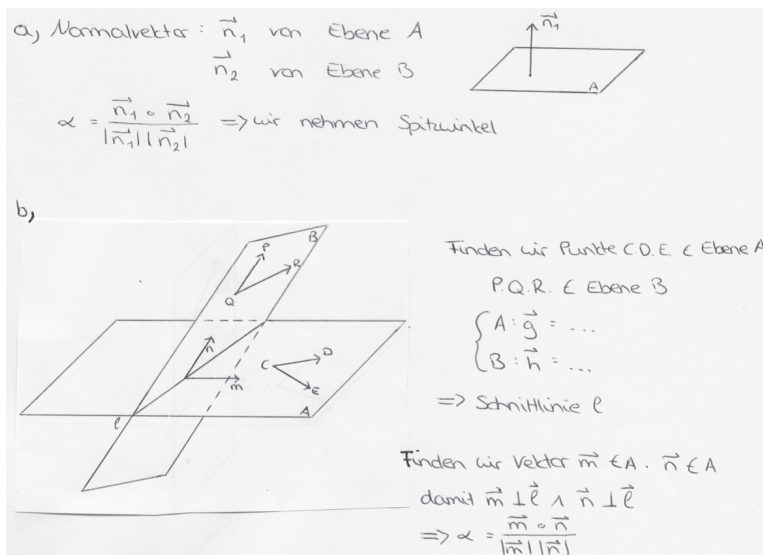 a, Normalvektor : n⃗₁ von Ebene A
n⃗₂ von Ebene B
n⃗₁
A
α = (n⃗₁ ∘ n⃗₂) / (|n⃗₁| |n⃗₂|) => wir nehmen Spitzwinkel
b,
B
P
R
Q
n
m
C
D
E
A
l
Finden wir Punkte C.D.E. ∈ Ebene A
P.Q.R. ∈ Ebene B
{ A : g⃗ = ...
B : h⃗ = ...
=> Schnittlinie l
Finden wir Vektor m⃗ ∈ A . n⃗ ∈ A
damit m⃗ ⊥ l⃗ ∧ n⃗ ⊥ l⃗
=> α = (m⃗ ∘ n⃗) / (|m⃗| |n⃗|)